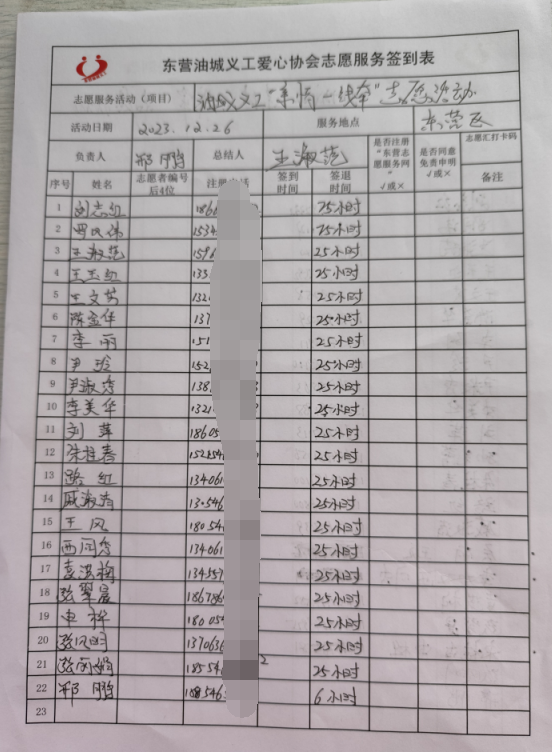 东营油城义工爱心协会志愿服务签到表
志愿服务活动（项目） 油城义工"亲情一线牵"志愿活动
活动日期 2023.12.26 服务地点 东营区
负责人 郑鹏 总结人 王淑范 是否注册"东营志愿服务网" √或× 是否同意免责申明 √或× 志愿汇打卡码
序号 姓名 志愿者编号后4位 注册电话 签到时间 签退时间 备注
1 刘志红 186 25小时
2 153 25小时
3 王淑范 159 25小时
4 王玉红 133 25小时
5 王文 132 25小时
6 陈金华 137 25小时
7 李丽 151 25小时
8 尹玲 152 25小时
9 尹淑秀 138 25小时
10 李美华 1321 25小时
11 刘萍 18605 25小时
12 朱桂春 152254 25小时
13 路红 134061 25小时
14 戚淑青 130546 25小时
15 王凤 18054 25小时
16 西同秀 134061 25小时
17 袁洪梅 134557 25小时
18 张翠晨 186786 25小时
19 申 18005 25小时
20 张凤明 1370636 25小时
21 张 18554 2 25小时
22 郑鹏 158546 6小时
23